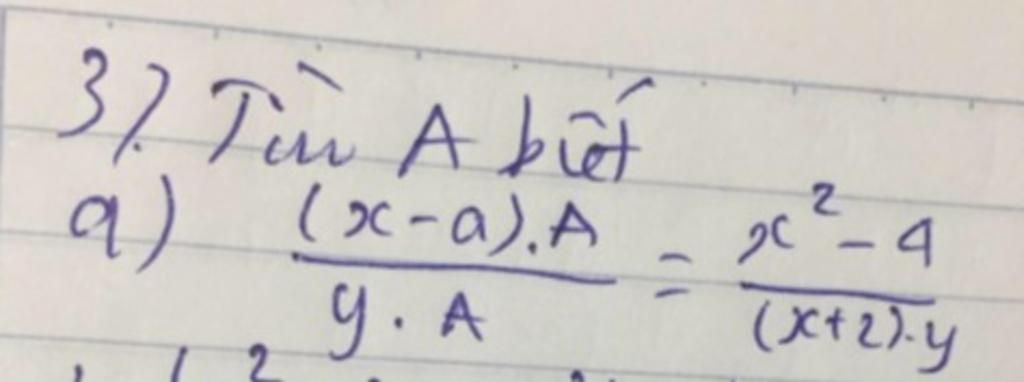 3/. Tìm A biết
a) \frac{(x-a).A}{y.A} = \frac{x^2-4}{(x+2).y}